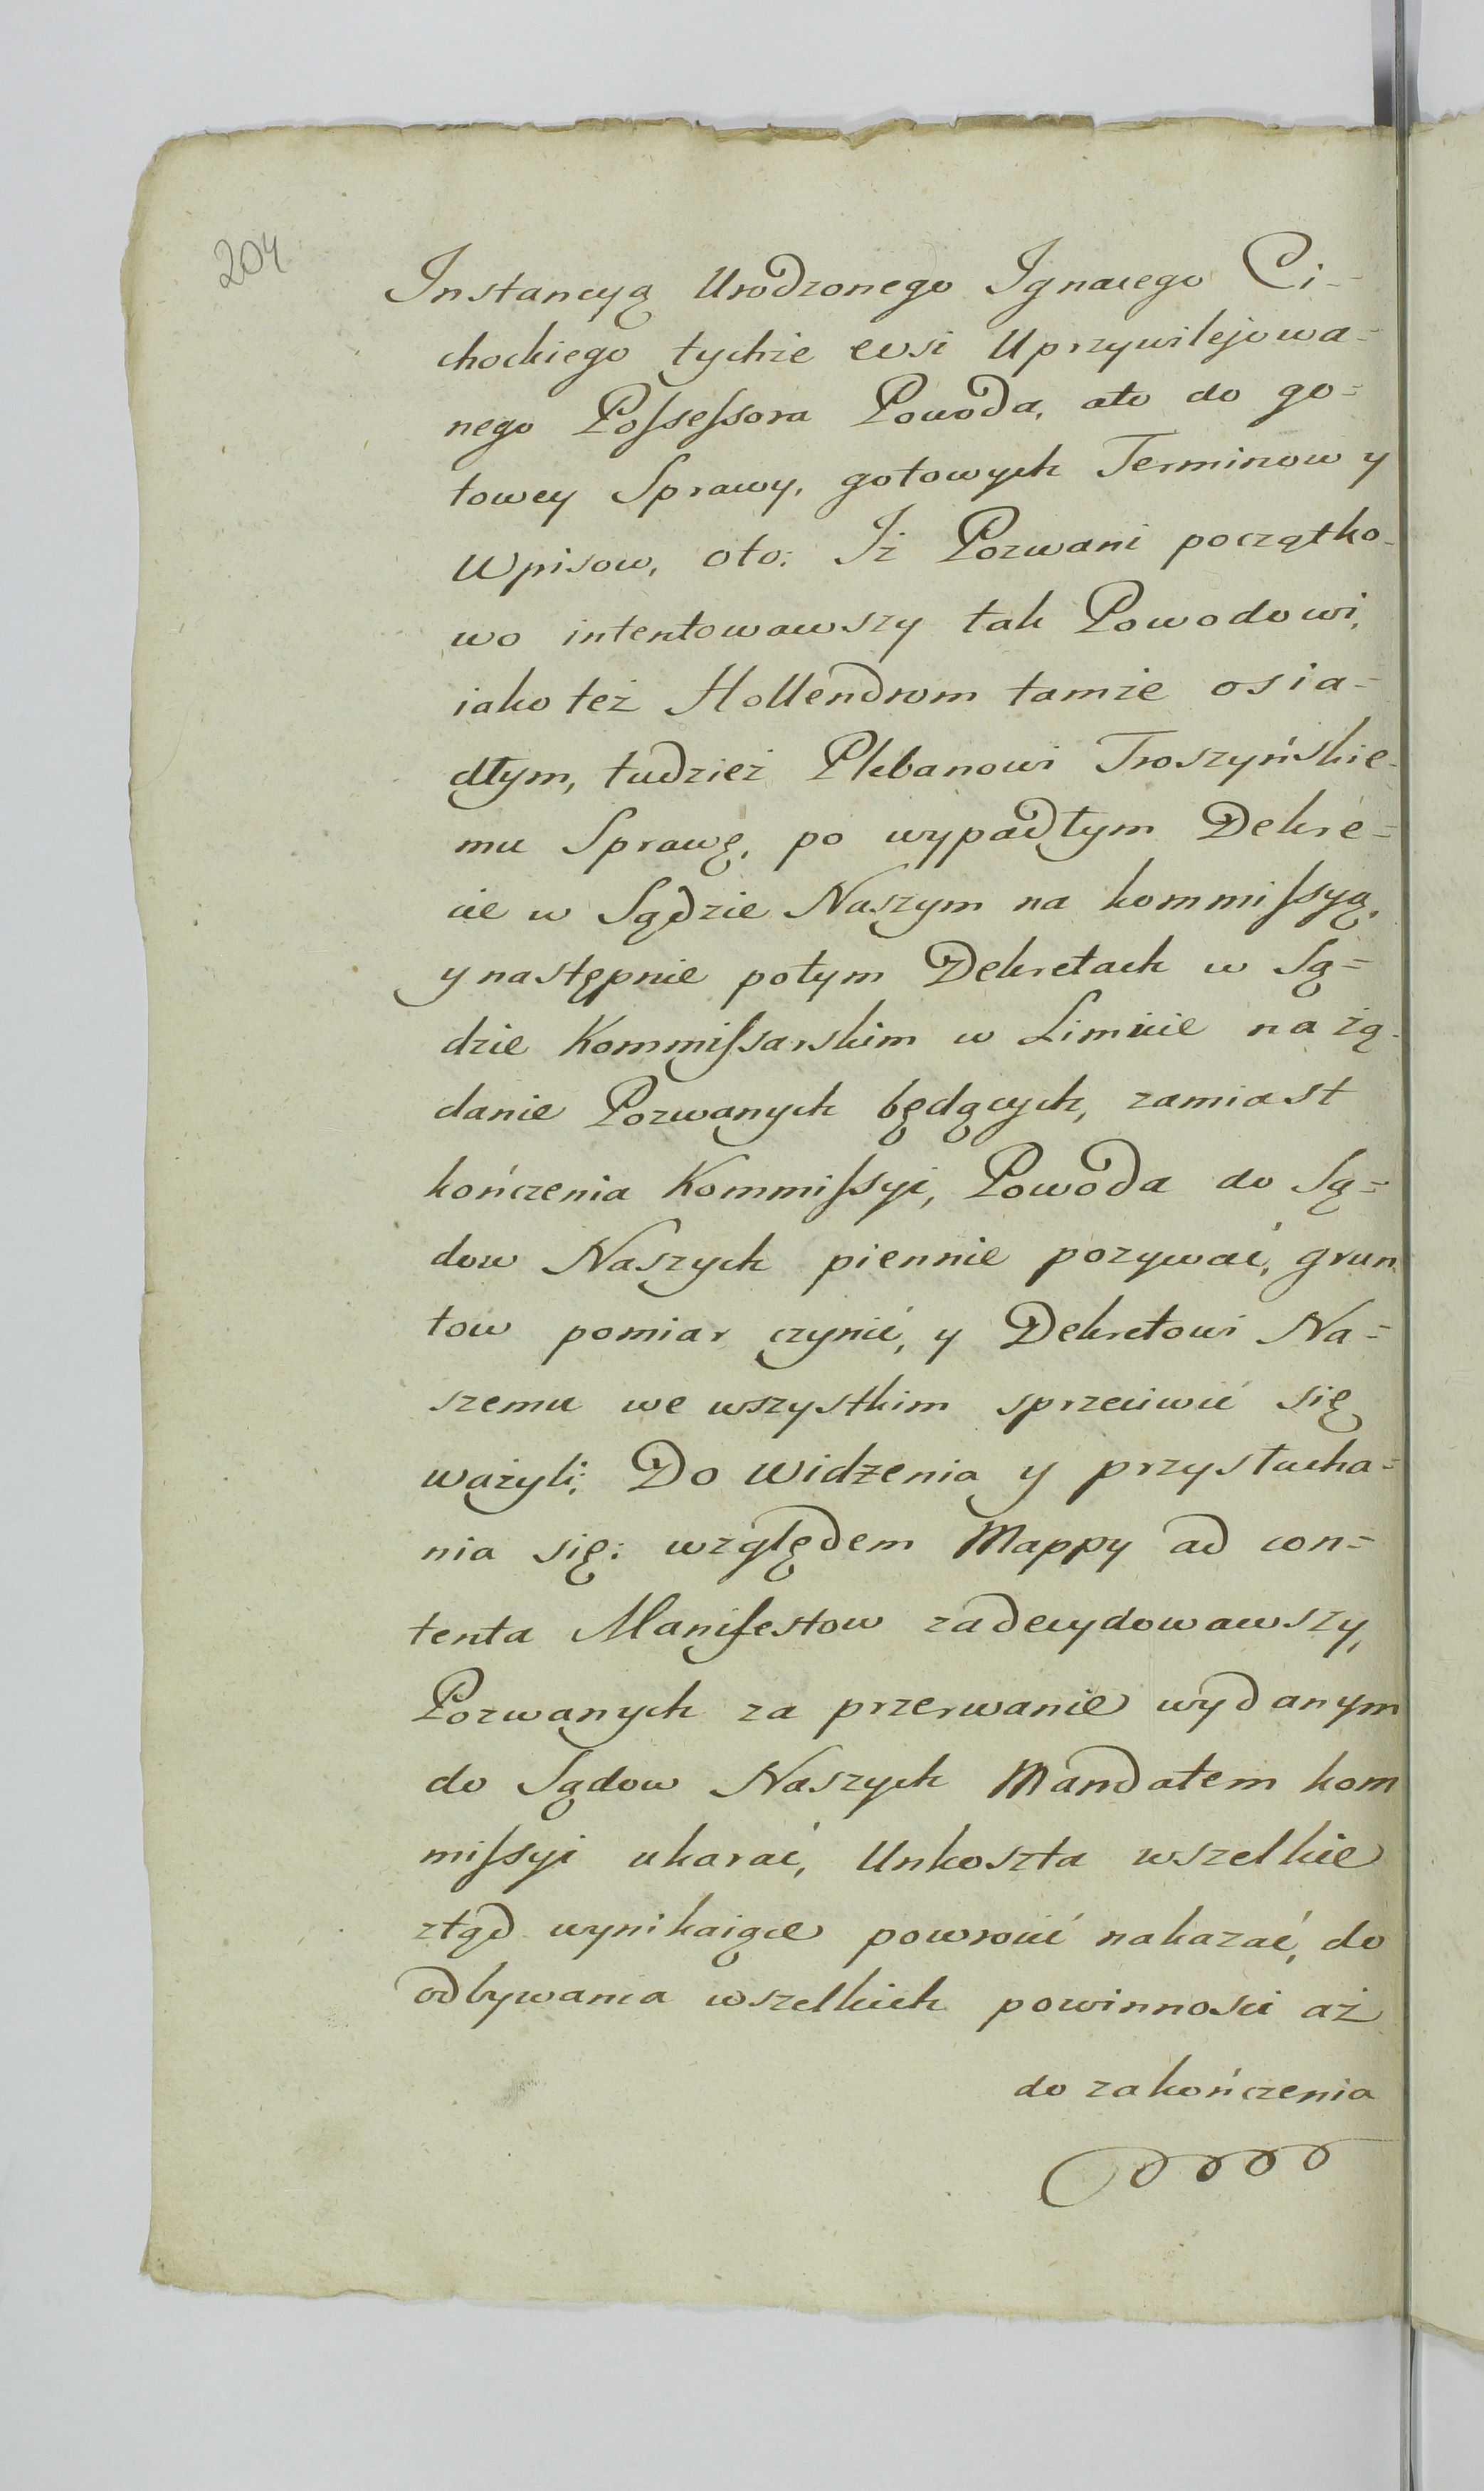 204
Instancyą Urodzonego Ignacego Ci-
chockiego tychże wsi Uprzywilejowa-
nego Poſseſsora Powoda, ato do go-
towey Sprawy, gotowych Terminow y
Wpisow, oto: Iż Pozwani początko-
wo intentowawszy tak Powodowi,
iako też Hollendrom tamże osia-
dłym, tudzież Plebanowi Troszyńskie-
mu Sprawę, po wypadłym Dekre-
cie w Sądzie Naszym na kommiſsyą,
y następnie potym Dekretach w Są-
dzie Kommiſsarskim w Limicie na żą-
danie Pozwanych będących, zamiast
kończenia Kommiſsyi, Powoda do Są-
dow Naszych piennie pozywać, grun
tow pomiar czynić, y Dekretowi Na-
szemu we wszystkim sprzeciwić się
ważyli; Do Widzenia y przysłucha-
nia się: względem Mappy ad con-
tenta Manifestow zadecydowawszy,
Pozwanych za przerwanie wydanym
do Sądow Naszych Mandatem kom
miſsyi ukarać, Unkoszta wszelkie
ztąd wynikaiące powrocić nakazać, do
odbywania wszelkich powinnosci aż
do zakończenia